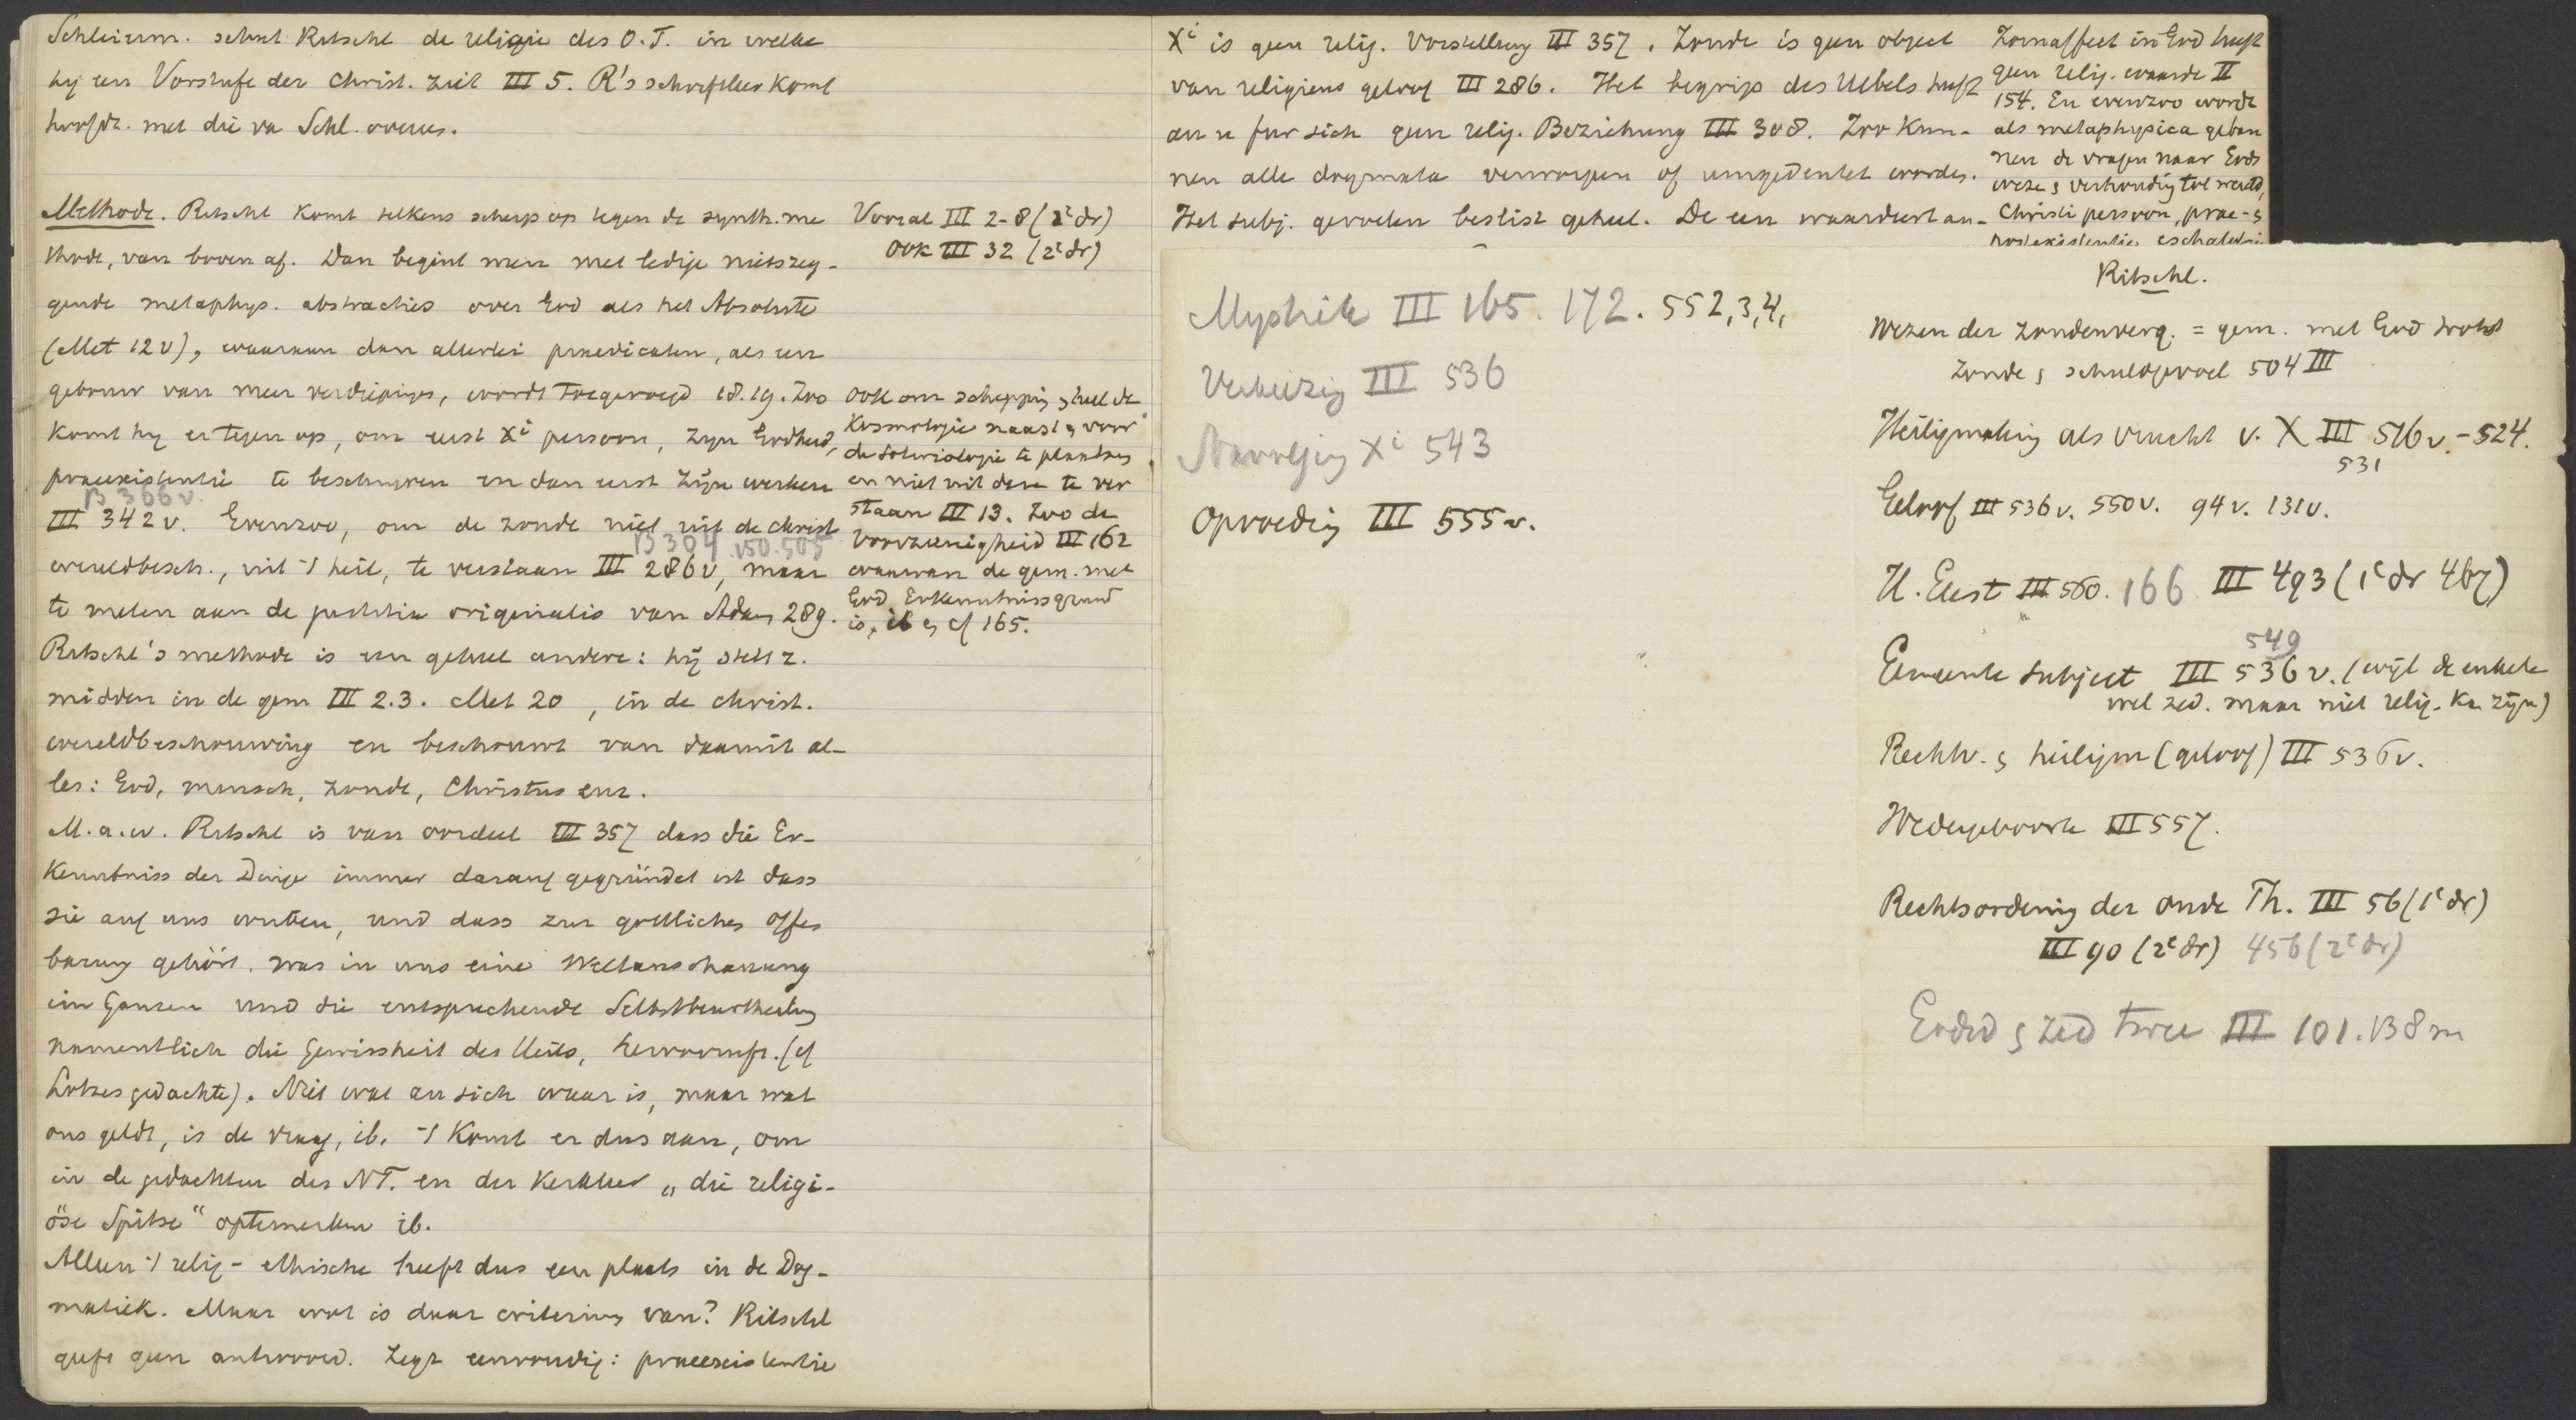 Schleierm. schat Ritschl de religie des O.T. in welke
hij een Vorstufe der Christ. ziet III 5. R's schriftleer komt
hoofdz. met die va Schl. overeen.
Methode. Ritschl komt telkens scherp op tegen de synth. me
thode, van boven af. Dan begint men met ledige nietszeg-
gende metaphys. abstracties over God als het Absolute
(Met 12 v), waaraan dan allerlei praedicaten, als een
gebouw van meer verdiepingen, wordt toegevoegd 18.19. Zoo
komt hij er tegen op, om eerst Xi persoon, zijn Godheid,
praeexistentie te beschrijven en dan eerst zijn werken
B 366 v.
III 342 v. Evenzoo, om de zonde niet uit de christ
B 304 v 50. 505
wereldbesch., uit 't heil, te verstaan III 286 v, maar
te meten aan de justitia originalis van Adam 289.
Ritschl's methode is een geheel andere: hij stelt z.
midden in de gem III 2.3. Met 20, in de christ.
wereldbeschouwing en beschouwt van daaruit al-
les: God, mensch, zonde, Christus enz.
M.a.w. Ritschl is van oordeel III 357 dass die Er-
kenntniss der Dinge immer darauf gegründet ist dass
sie auf uns wirken, und dass zur gottlichen Offen
barung gehört was in uns eine Weltanschauung
im Ganzen und die entsprechende Selbstbeurtheilung
namentlich die Gewissheit des Heils, hervorruft. (cf
Lotzes gedachte). Niet wat an sich waar is, maar wat
ons geldt, is de vraag, ib. 't Komt er dus aan, om
in de gedachten des NT. en der Kerkleer „die religi-
öse Spitze" optemerken ib.
Alleen 't relig-ethische heeft dus een plaats in de Dog-
matiek. Maar wat is daar criterium van? Ritschl
geeft geen antwoord. Zegt eenvoudig: praeexistentie
Vooral III 2-8 (2e dr)
Ook III 32 (2e dr)
Ook om schepping heel de
Kosmologie naast voor
de soteriologie te plaatsen
en niet uit deze te ver
staan III 13. Zoo de
Voorzienigheid III 162
waarvan de gem. met
God Erkenntnissgrund
is, ib cf 165.
Xi is geen relig. Vorstellung III 357. Zonde is geen object
van religieus geloof III 286. Het begrip des Uebels heeft
an u fur sich geen relig. Beziehung III 308. Zoo kun-
nen alle dogmata verworpen of umgedeutet worden.
Het subj. gevoelen beslist geheel. De een waardeert an-
Zornaffect in God heeft
geen relig. waarde II
154. En evenzoo worden
als metaphysica geban
nen de vragen naar Gods
wezen verhouding tot wereld,
Christi persoon, prae-
postexistentie, eschatologie
Mystiek III 165. 172. 552,3,4,
Verkiezing III 536
Navolging Xi 543
Opvoeding III 555 v.
Ritschl.
Wezen der zondenverg. = gem. met God trots
zonde schuldgevoel 504 III
Heiligmaking als vrucht v. X III 516 v. - 524.
531
Geloof III 536 v. 550 v. 94 v. 131 v.
H. Geest III 560. 166 III 493 (1e dr 467)
549
Gemeente subject III 536 v. (wijl de enkele
wel zed. maar niet relig. kan zijn)
Rechtv. heiligm (geloof) III 536 v.
Wedergeboorte III 557.
Rechtsordening der oude Th. III 56 (1e dr)
III 90 (2e dr) 456 (2e dr)
Godsd zed twee III 101. 138 m